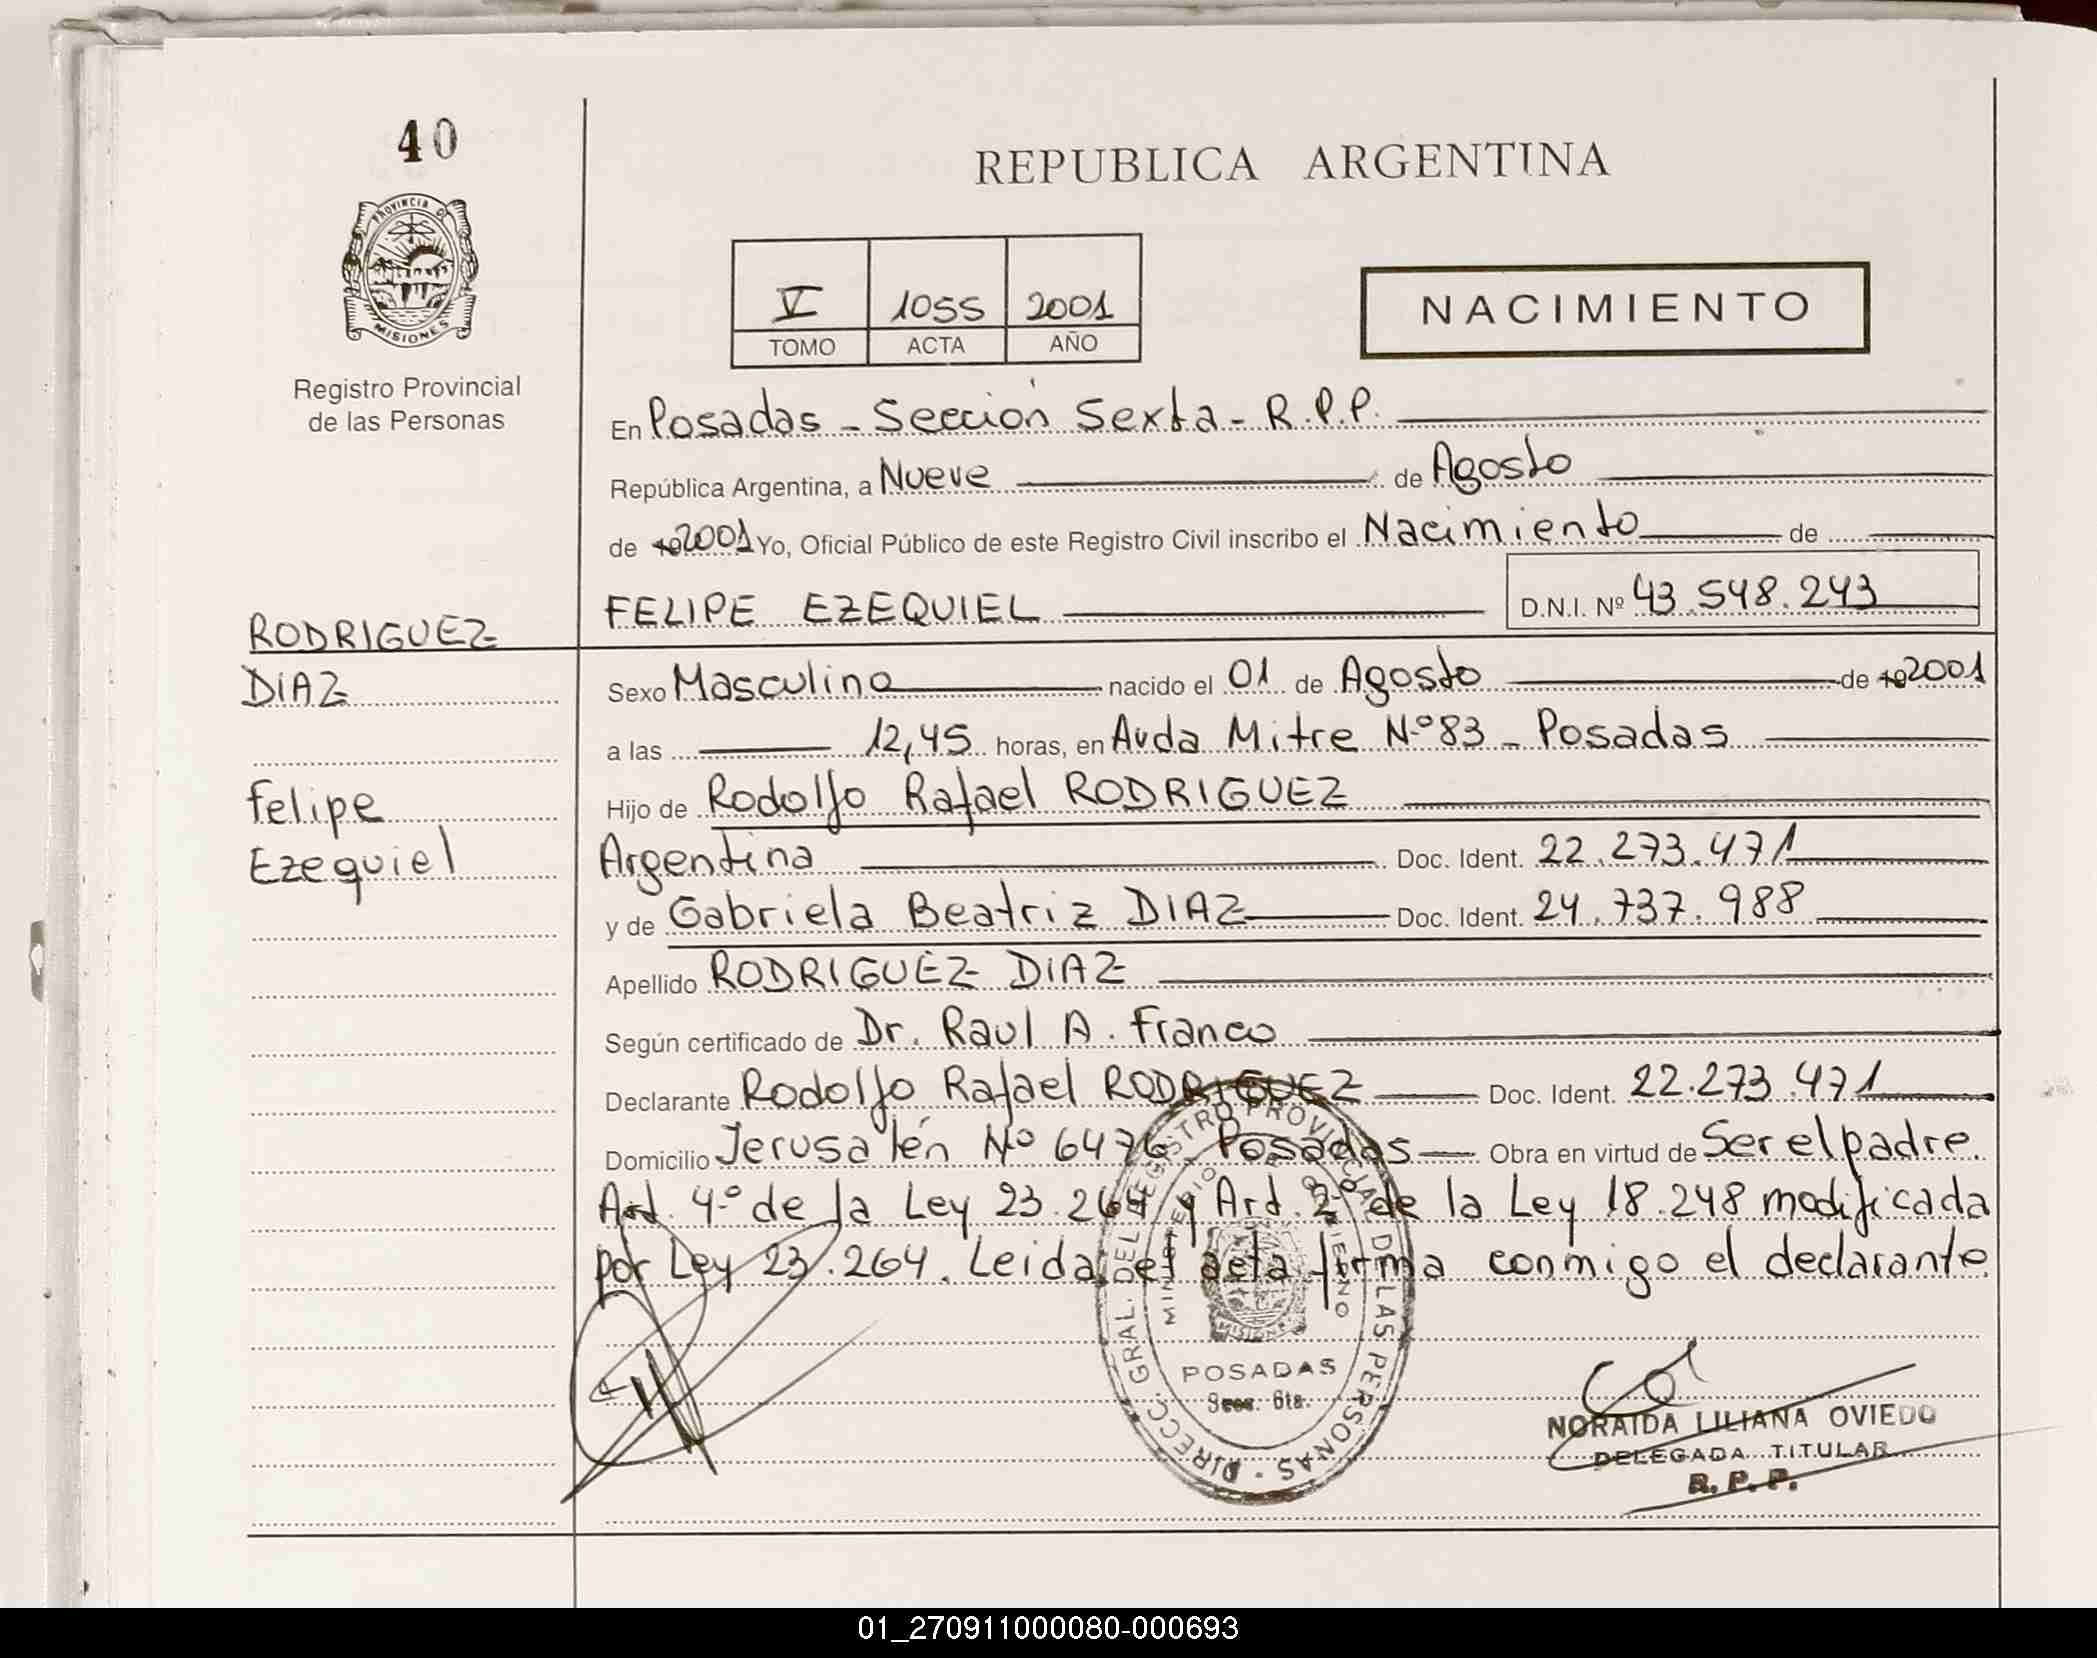 40
PROVINCIA DE
MISIONES
Registro Provincial
de las Personas
REPUBLICA ARGENTINA
V 1055 2001
TOMO ACTA AÑO
NACIMIENTO
En Posadas - Sección Sexta - R.P.P.
República Argentina, a Nueve de Agosto
de 19 2001 Yo, Oficial Público de este Registro Civil inscribo el Nacimiento de
FELIPE EZEQUIEL D.N.I. Nº 43.548.243
RODRIGUEZ
DIAZ
Felipe
Ezequiel
Sexo Masculino nacido el 01 de Agosto de 19 2001
a las 12,45 horas, en Avda Mitre Nº 83 - Posadas
Hijo de Rodolfo Rafael RODRIGUEZ
Argentina Doc. Ident. 22.273.471
y de Gabriela Beatriz DIAZ Doc. Ident. 24.737.988
Apellido RODRIGUEZ DIAZ
Según certificado de Dr. Raul A. Franco
Declarante Rodolfo Rafael RODRIGUEZ Doc. Ident. 22.273.471
Domicilio Jerusalén Nº 6476 Posadas Obra en virtud de Ser el padre.
Art. 4º de la Ley 23.264 y Art. 2º de la Ley 18.248 modificada
por Ley 23.264. Leida el acta firma conmigo el declarante
DIRECC. GRAL. DEL REGISTRO PROVINCIAL DE LAS PERSONAS
MINISTERIO DE GOBIERNO
MISIONES
POSADAS
Secc. 6ta.
NORAIDA LILIANA OVIEDO
DELEGADA TITULAR
R.P.P.
01_270911000080-000693